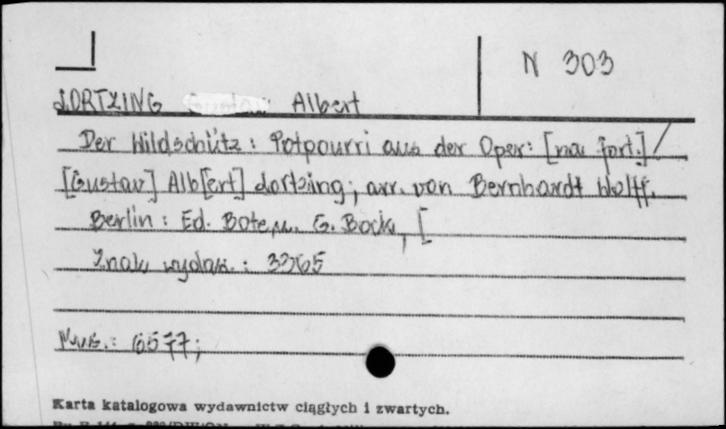 N 303
LORTZING Gustaw Albert
Der Wildschütz : Potpourri aus der Oper : [na fort.] /
[Gustav] Alb[ert] Lortzing ; arr. von Bernhardt Wolff.
Berlin : Ed. Bote u. G. Bock, [
Znak wydaw. : 3365
Mus. : 6577 ;
Karta katalogowa wydawnictw ciągłych i zwartych.